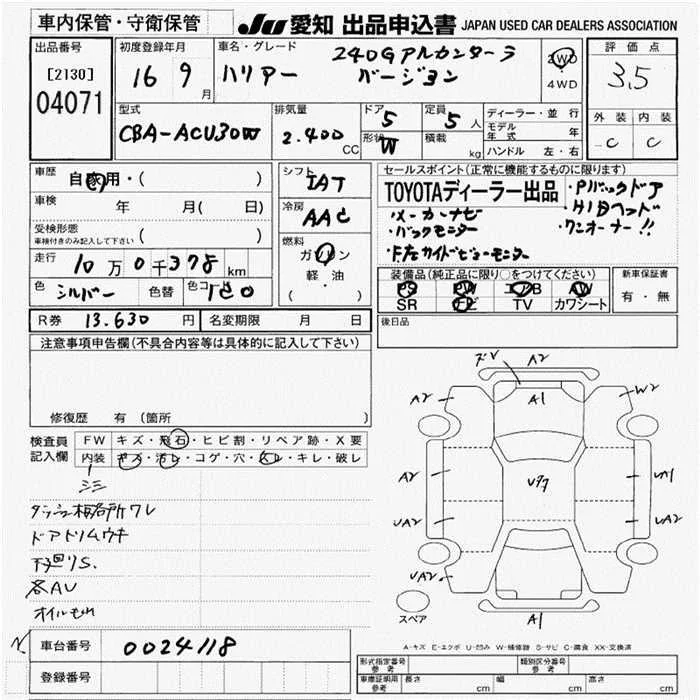 車内保管・守衛保管
JU 愛知 出品申込書 JAPAN USED CAR DEALERS ASSOCIATION
出品番号
[2130]
04071
初度登録年月
16 9月
車名・グレード
ハリアー 240Gアルカンターラ
バージョン
2WD
・
4WD
評価点
3.5
型式
CBA-ACU30W
排気量
2.400 CC
ドア
5
形状
W
定員
5人
積載
kg
ディーラー・並行
モデル年式 年
ハンドル 左・右
外装 内装
C C
車歴
自家用・( )
車検
年 月( 日)
受検形態
車検付きのみ記入して下さい ( )
走行
10万0千378km
色
シルバー
色替
色コード
1C0
シフト
IAT
冷房
AAC
燃料
ガソリン
軽・油
( ・ )
セールスポイント(正常に機能するものに限ります)
TOYOTAディーラー出品
・Pバックドア
・メーカーナビ
・HIDヘッド
・バックモニター
・ワンオーナー!!
装備品(純正品に限り○をつけてください)
PS PW エアB AW
SR ナビ TV カワシート
新車保証書
有・無
R券 13.630円
名変期限 月 日
後日品
注意事項申告欄(不具合内容等は具体的に記入して下さい)
修復歴 有(箇所
検査員
記入欄
FW キズ・飛石・ヒビ割・リペア跡・X要
内装 キズ・汚レ・コゲ・穴・スレ・キレ・破レ
シミ
ドアトリムウキ
下回りS.
各AU
車台番号 0024118
登録番号
A2
A1
A2
W2
A2
UA2
UA2
UA1
UA2
A1
スペア
A-キズ E-エクボ U-凹み W-補修跡 S-サビ C-腐食 XX-交換済
形式指定番号
参考
類別区分番号
参考
車庫証明用
参考
長さ cm 幅 cm 高さ cm